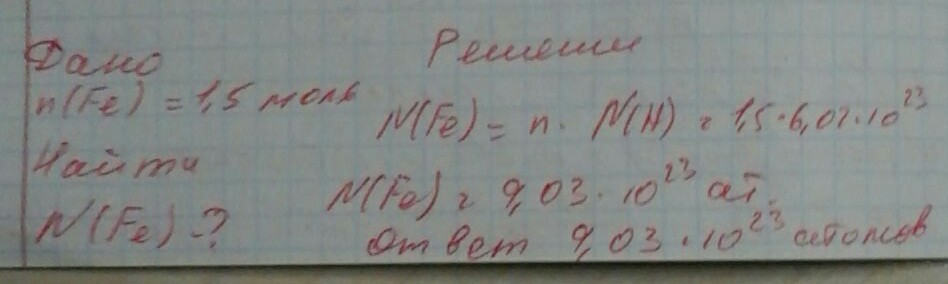 Дано
n(Fe) = 1,5 моль
Найти
N(Fe) - ?
Решение
N(Fe) = n · N(A) = 1,5 · 6,02 · 10²³
N(Fe) = 9,03 · 10²³ ат.
Ответ 9,03 · 10²³ атомов